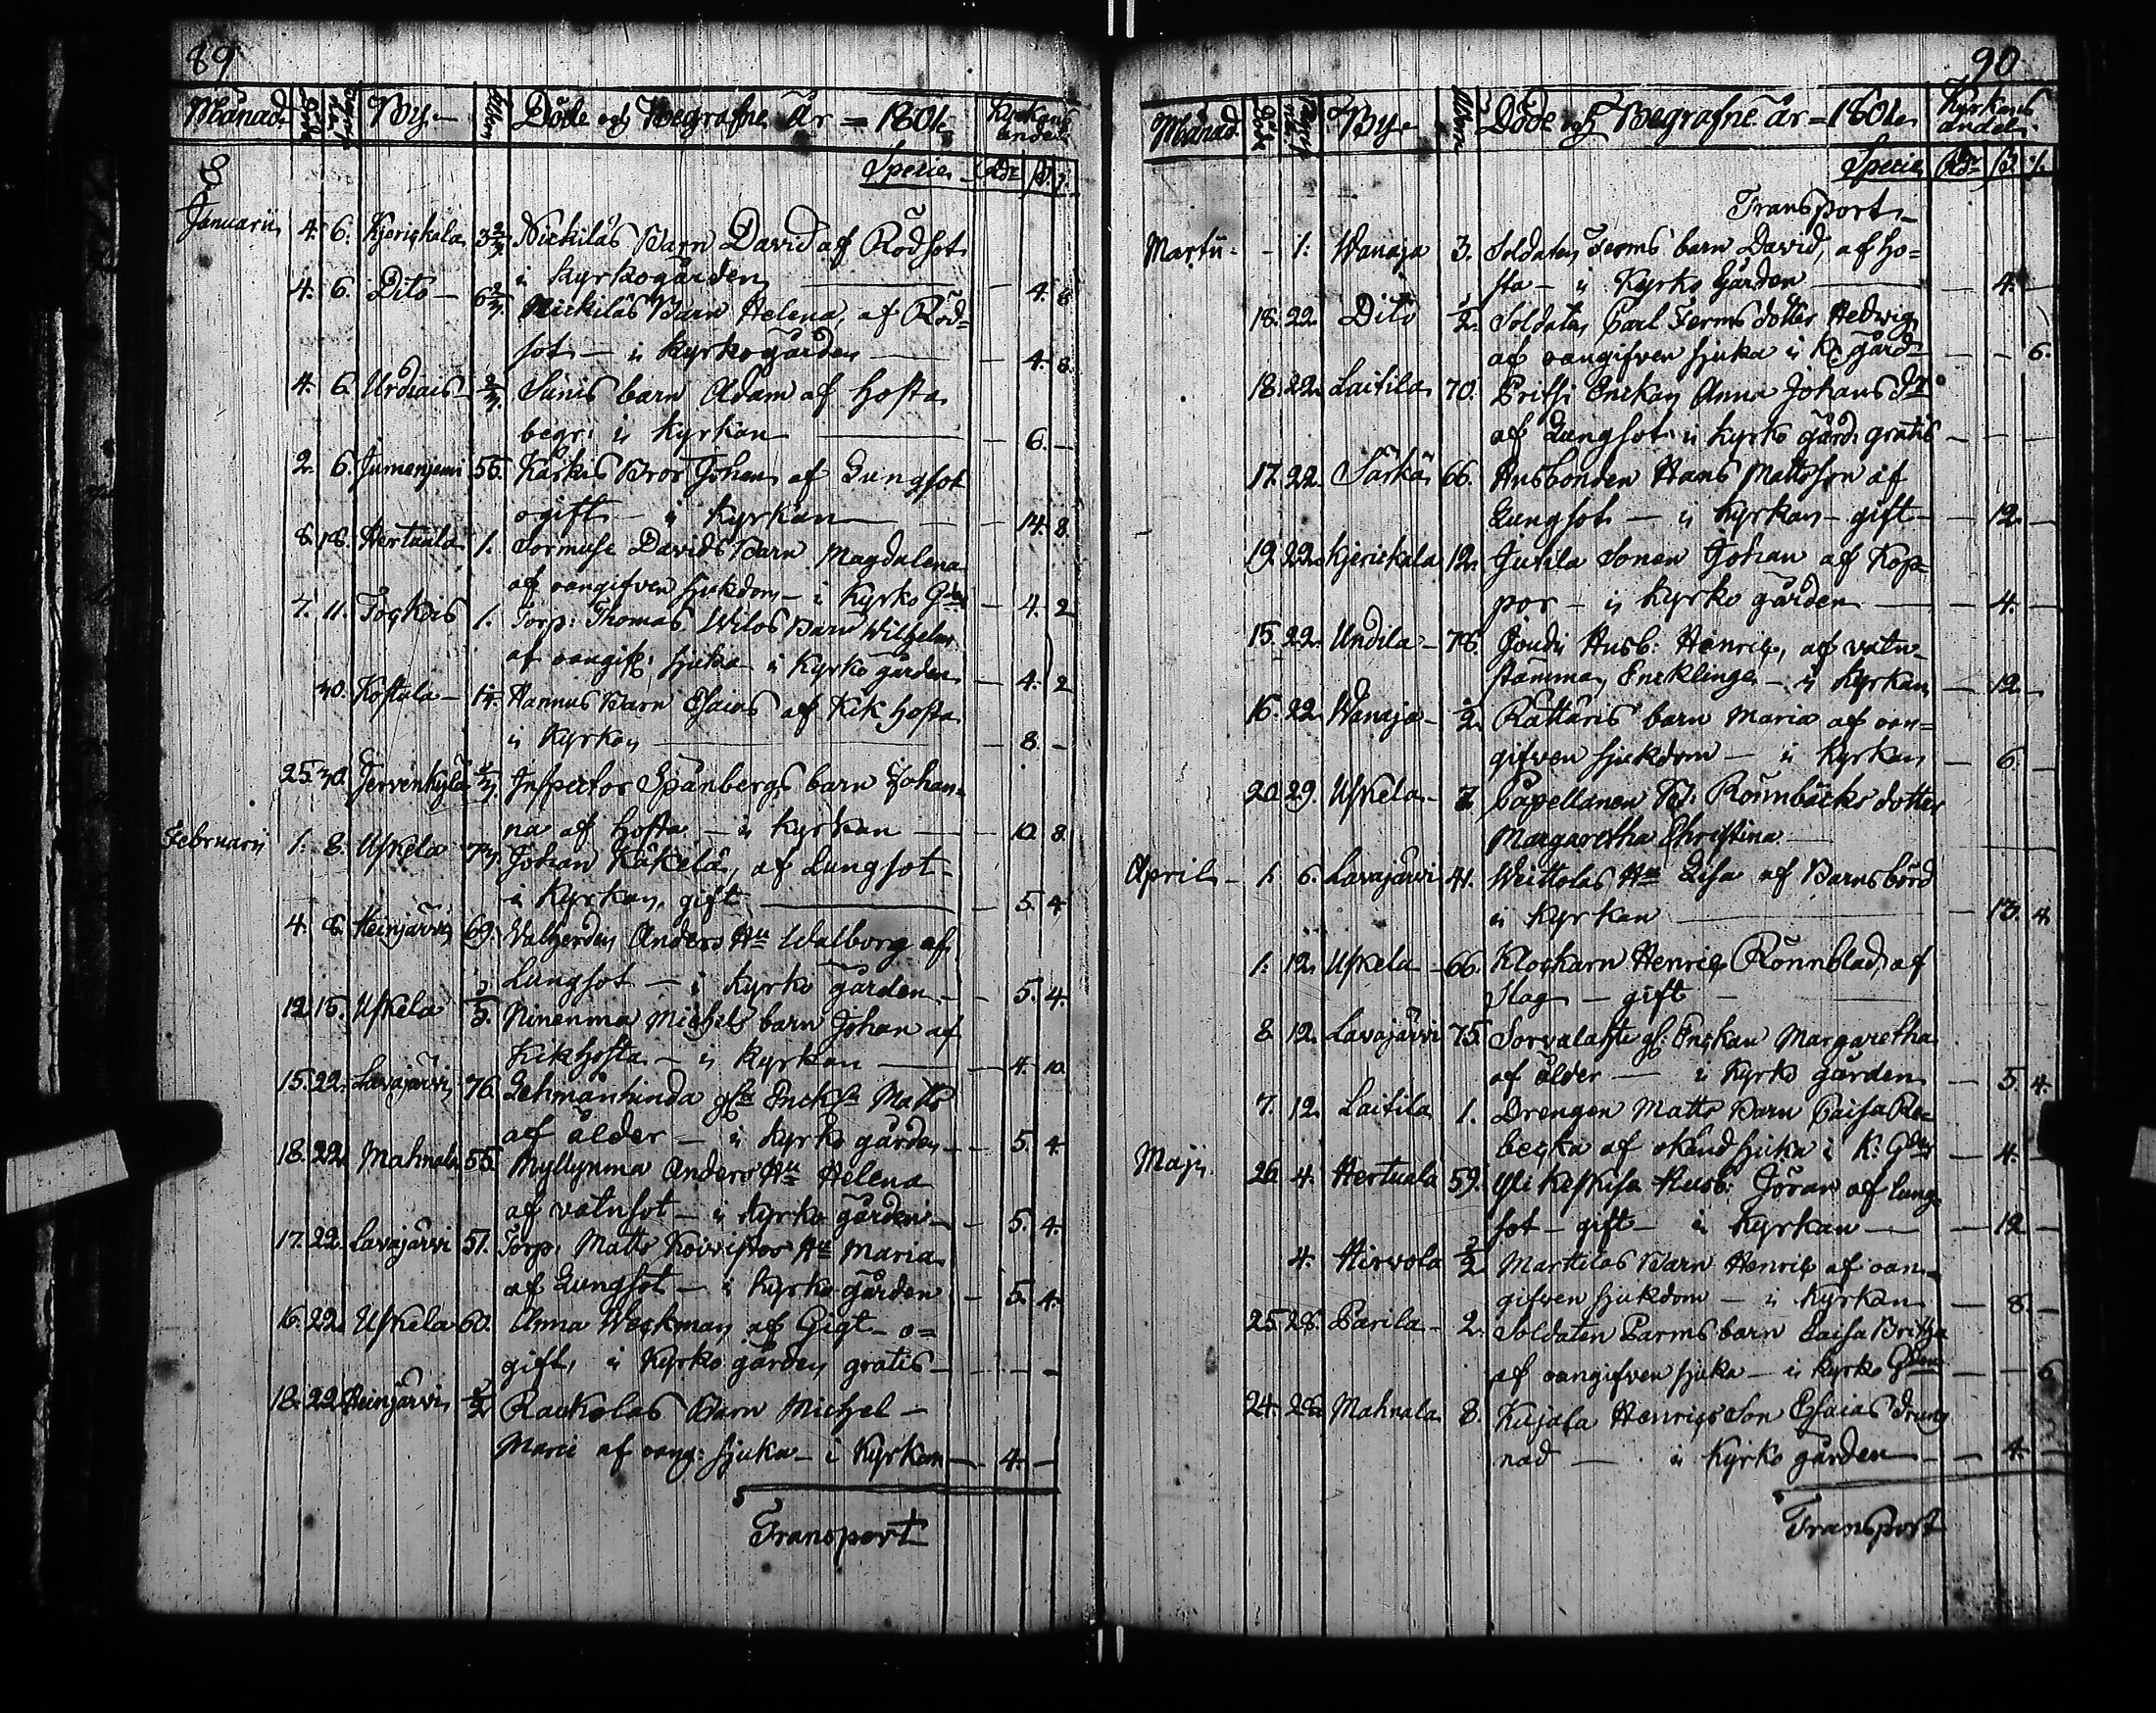 89
Månad. Död Begr. By. Åldern Döde och Begrafne År = 1801. Kyrkans andel
Specie Rdr ß. r.
Januarii 4. 6. Kjerickala 3 2/3. Nickiläs Barn David af Rödsot
i kyrkogården — 4. 8
4. 6. Dito — 6 2/3. Nickiläs Barn Helena, af Röd=
sot — i kyrkogården — 4. 8.
4. 6. Urdiais — Sunis barn Adam af Hosta
begr: i Kyrkan — 6. —
2. 6. Jumenjemi 55. Kärkis Bror Johan af Lungsot
ogift — i Kyrkan — 14. 8.
8. 18. Hertuala 1. Sormuse Davids Barn Magdalena
af oangifven sjukdom — i Kyrko Gden — 4. 2
7. 11. 1. Torp: Thomas Wilos Barn Wilhelm
af oangif: sjuka — i Kyrko gården — 4. 2
30. Kostala — Hannus Barn Esaias af Kik hosta
i Kyrkan — 8. —
25. 30. Jervenkylä Inspector Spånbergs barn Johan=
na af Hosta — i Kyrkan — 10. 8.
Februarii 1. 8. Uskela 73. Johan Käkelä, af Lungsot —
i Kyrkan, gift — 5. 4
4. 8. Heinjärvi 69. Anders Hu Walborg af
Lungsot — i Kyrko gården — 5. 4.
12. 15. Uskela Ninenma Michels barn Johan af
Kikhosta — i Kyrkan — 4. 10
15. 22. Lavajärvi 76. Matts
af ålder — i Kyrko gården — 5. 4.
18. 22. Mahnala 55. Myllynma Anders Hu Helena
af vatnsot — i Kyrko gården — 5. 4.
17. 22. Lavajärvi 51. Torp: Matts Koivistos Hu Maria
af Lungsot — i Kyrko gården — 5. 4.
16. 22. Uskela 60. Anna Weckman af Gigt — o=
gift, i Kyrko gården gratis —
18. 22. Heinjärvi 1/2 Rackolas Barn Michel —
Marci af oang: sjuka — i Kyrkan — 4. —
Transport
90
Månad. Död Begr. By. Åldern Döde och Begrafne år = 1801. Kyrkans andel.
Specie Rdr ß. r.
Transport
Martii — 1. Wanaja 3. Soldaten Ferms barn David, af Ho=
sta — i Kyrko Gården — 4. —
18. 22. Dito 1/2. Soldaten Carl Ferms dotter Hedwig
af oangifven sjuka i K: gård — 6.
18. 22. Laitila 70. Prihti Enckan Anna Johans dr
af Lungsot i Kyrko gård: gratis —
17. 22. Särkä 66. Husbonden Hans Mattsson af
Lungsot — i Kyrkan — gift — 12. —
19. 22. Kjerickala 12. Jutila Sonen Johan af Kop=
por — i Kyrko gården — 4. —
15. 22. Undila — 78. Joudi Husb: Henric, af vatn
stämma, Encklinge — i Kyrkan — 12. —
16. 22. Wanaja — 1/2. Rättäris barn Maria af oan=
gifven sjukdom — i Kyrkan — 6. —
20. 29. Uskela — 7. Capellanen Rönnbäcks dotter
Margaretha Christina —
April — 1. 6. Lavajärvi 41. Weittolas Hu Lisa af Barnsbörd
i Kyrkan — 13. 4.
1. 12. Uskela — 66. Klockarn Henric Rönnblad, af
Slag — gift —
8. 12. Lavajärvi 75. gl: Enckan Margaretha
af ålder — i Kyrko gården — 5. 4.
7. 12. Laitila 1. Drengen Matts Barn Caisa Re=
becka af okänd sjuka i K: Gden — 4. —
Maji. 26. 4. Hertuala 59. Yli Keskisa Husb: Jöran af lung=
sot — gift — i Kyrkan — 12 —
4. Hirvola 1/2 Marttilas Barn Henric af oan=
gifven sjukdom — i Kyrkan — 8. —
25. 28. Parila — 2. Soldaten Parms barn Caisa Britha
af oangifven sjuka — i Kyrko Gden — 6
24. 28. Mahnala 8. Kujala Henrics Son Esaias drunk
nad — i Kyrko gården — 4. —
Transport